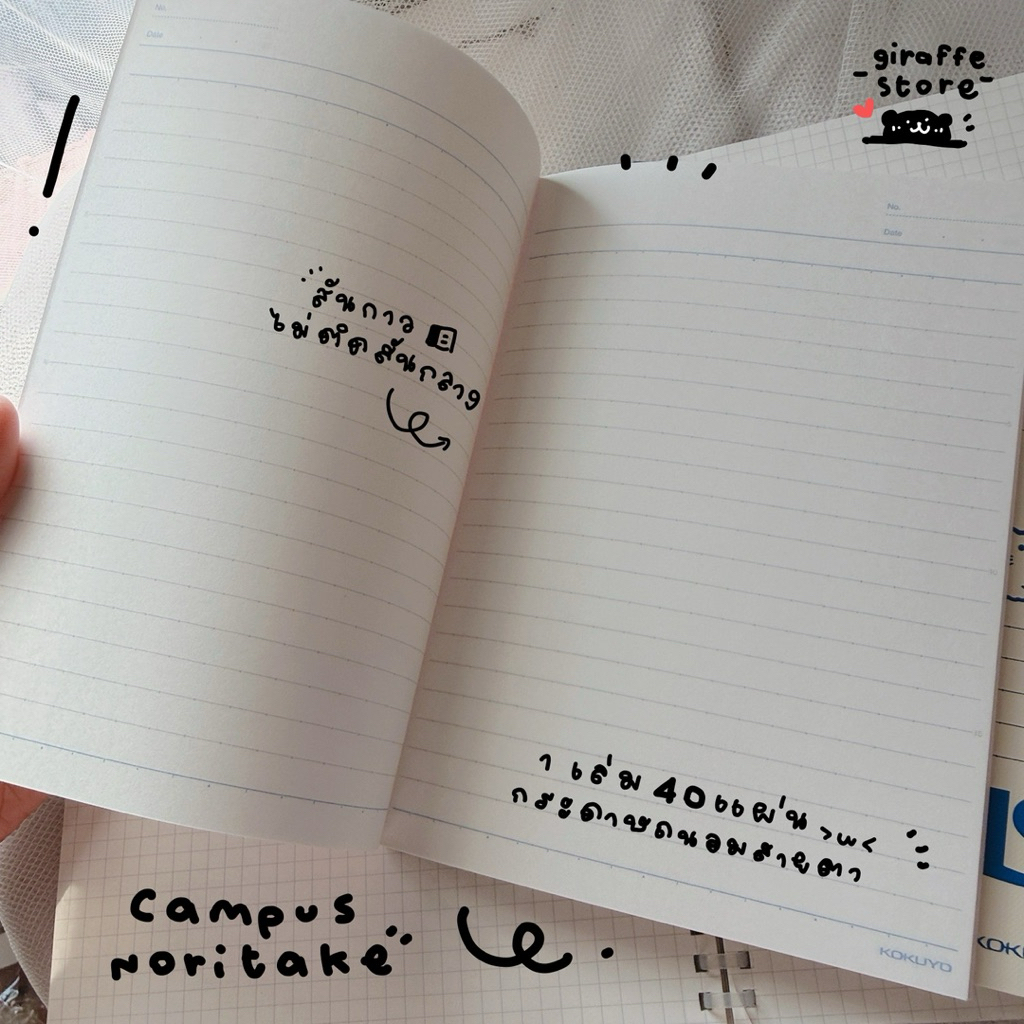 No.
Date
giraffe
store
No.
Date
สันกาว
ไม่ตัดสันกลาง
1 เล่ม 40 แผ่น >w<
กระดาษถนอมสายตา
KOKUYO
campus
Noritake